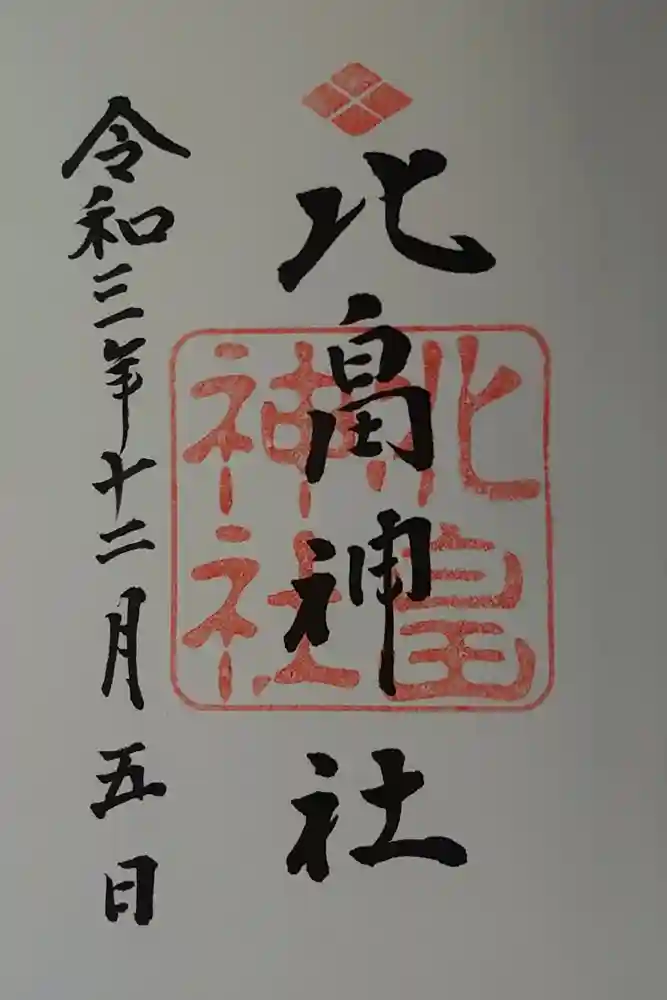 北畠神社
北畠神社
令和三年十二月五日